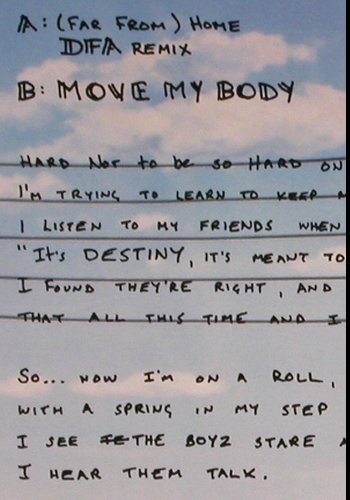 A: (FAR FROM) HOME
DFA REMIX
B: MOVE MY BODY
HARD NOT to be SO HARD ON
I'M TRYING TO LEARN TO KEEP
I LISTEN TO MY FRIENDS WHEN
"It's DESTINY, IT'S MEANT TO
I FOUND THEY'RE RIGHT, AND
THAT ALL THIS TIME AND I
SO... NOW I'M ON A ROLL,
WITH A SPRING IN MY STEP
I SEE THE BOYZ STARE
I HEAR THEM TALK.